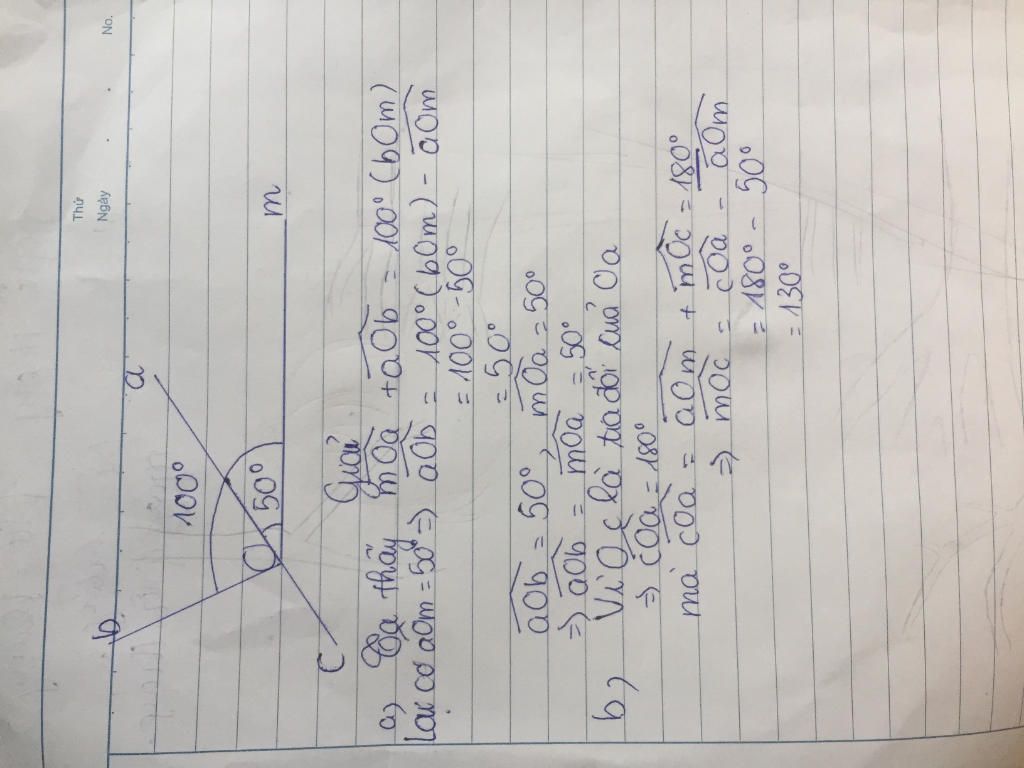 Thứ
Ngày
No.
b
a
100°
50°
O
m
c
Giải
a) Ta thấy mOa + aOb = 100° (bOm)
Lại có aOm = 50° => aOb = 100° (bOm) - aOm
= 100° - 50°
= 50°
aOb = 50°, mOa = 50°
=> aOb = mOa = 50°
b) Vì Oc là ta đối của Oa
=> cOa = 180°
mà cOa = aOm + mOc = 180°
=> mOc = cOa - aOm
= 180° - 50°
= 130°